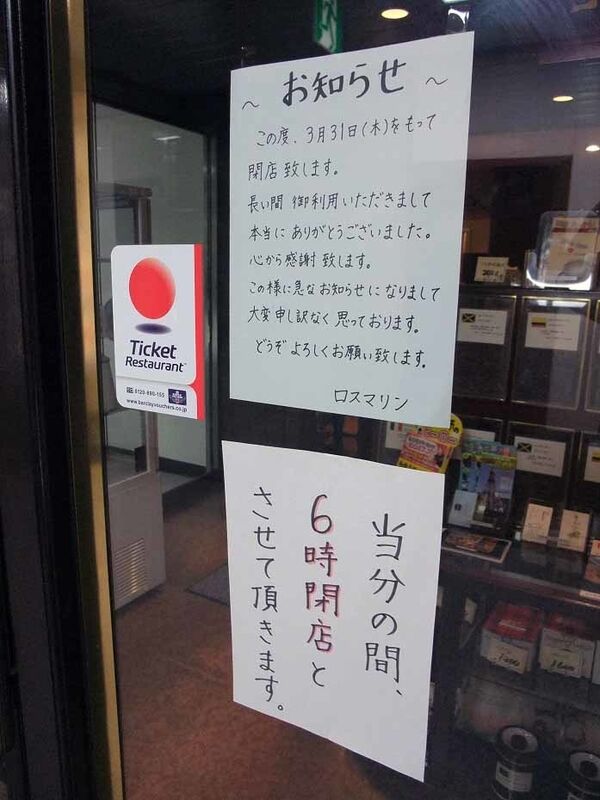 ～ お知らせ ～
この度、3月31日(木)をもって
閉店致します。
長い間 御利用いただきまして
本当に ありがとうございました。
心から感謝 致します。
この様に急な お知らせに なりまして
大変申し訳なく 思っております。
どうぞ よろしくお願い致します。
ロスマリン
Ticket
Restaurant
0120-890-155
www.barclayvouchers.co.jp
当分の間、
6時閉店と
させて頂きます。